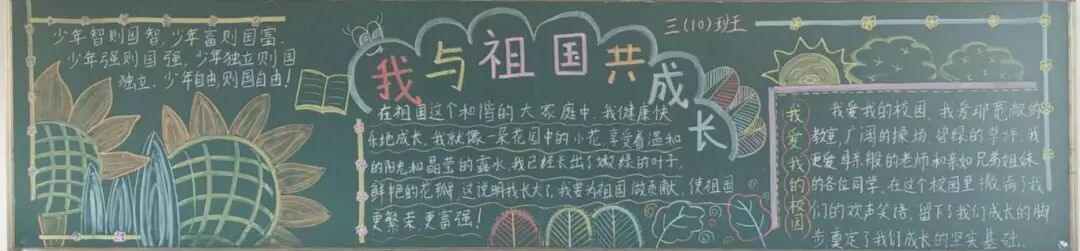 少年智则国智,少年富则国富,
少年强则国强,少年独立则国
独立,少年自由,则国自由!
我与祖国共成长
三(10)班
在祖国这个和谐的大家庭中,我健康快
乐地成长,我就像一朵花园中的小花,享受着温和
的阳光和晶莹的露水,我已经长出了嫩绿的叶子,
鲜艳的花瓣,这说明我长大了,我要为祖国做贡献,使祖国
更繁荣,更富强!
我爱我的校园
我爱我的校园,我爱那宽敞的
教室,广阔的操场,碧绿的草坪,我
更爱尊亲般的老师和亲如兄弟姐妹
的各位同学,在这个校园里撒满了我
们的欢声笑语,留下了我们成长的脚
步,奠定了我们成长的坚实基础.